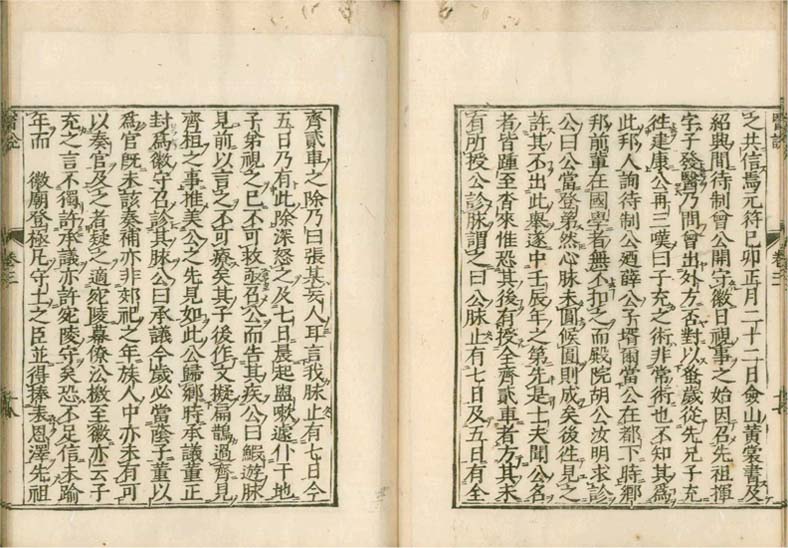 之共信焉元符巳卯正月二十二日僉山黃裳書及
紹興間待制曾公開守徽日視事之始因召先祖揮
字子發醫乃問曾出外方否對以蚤歲從先兄子充
往建康公再三嘆曰子充之術非常術也不知其爲
此邦人詢待制公廼薛公子壻爾當公在都下時鄉
邦前輩在國學者無不扣之而殿院胡公汝明求診
公曰公當登第然心脉未圓候圓則成矣後往見之
許其不出此舉遂中壬辰年之第先是士夫聞公名
者皆踵至沓來惟恐其後有授全齊貳車者方其未
有所授公診脉謂之曰公脉止有七日及五日有全
齊貳車之除乃曰張某妄人耳言我脉止有七日今
五日乃有此除深怒之及七日晨起盥嗽遽仆于地
子弟視之已不可救亟召公而告其疾公曰鰕遊脉
見前以言之不可療矣其子後作文擬扁鵲過齊見
齊祖之事推美公之先見如此公歸鄉時承議董正
封爲徽守召診其脉公曰承議今歲必當蔭子董以
爲官旣未該奏補亦非郊祀之年族人中亦未有可
以奏官及之者疑之適宛陵幕僚沿檄至徽亦云子
充之言不獨許承議亦許宛陵守矣恐不足信未踰
年而 徽廟登極凡守土之臣並得捧表恩澤先祖
卷三